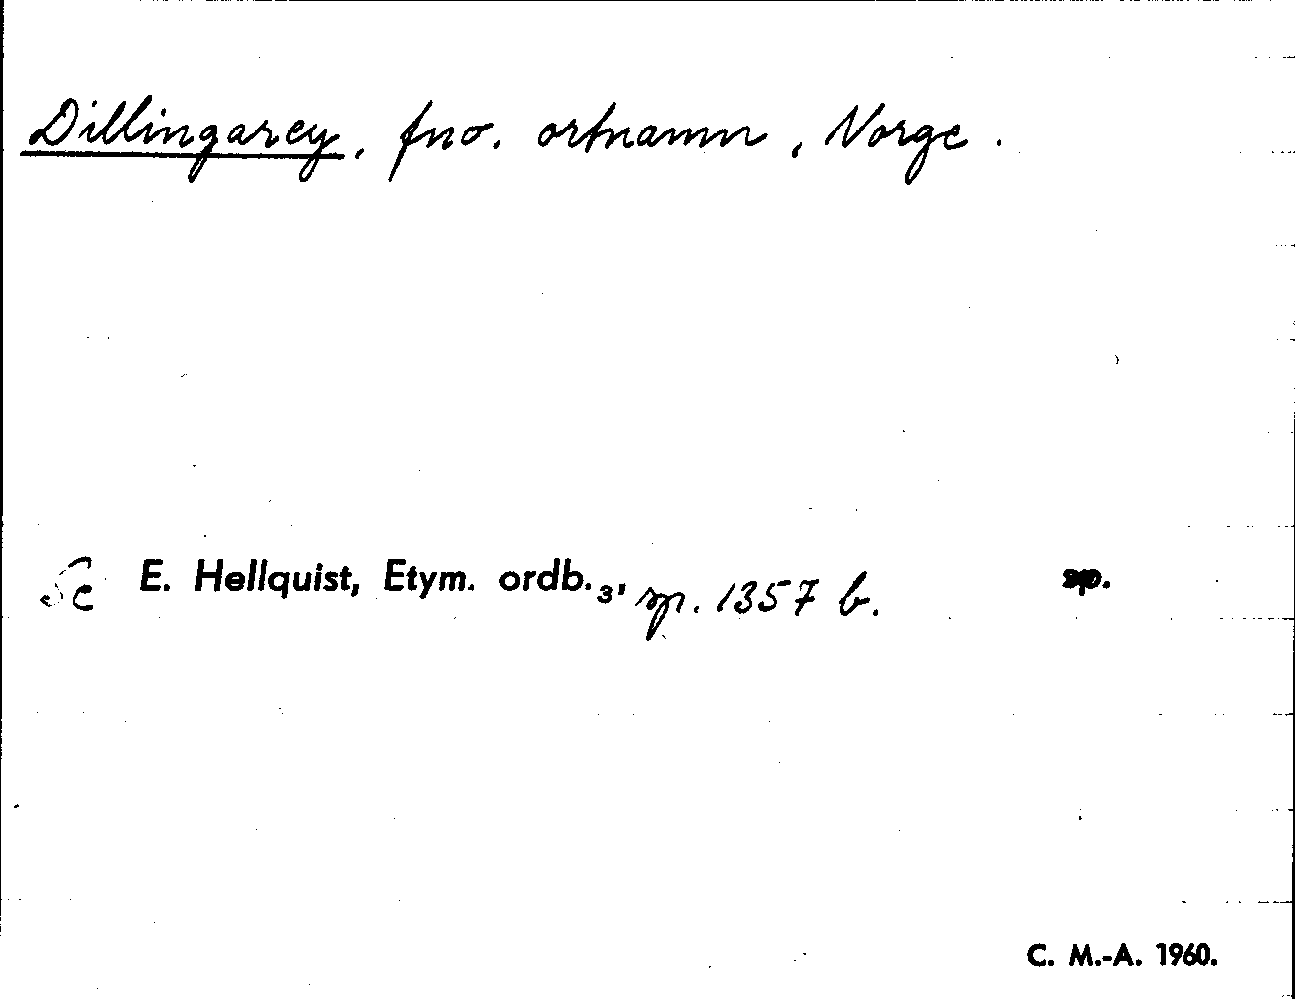 Dillingarey, fno. ortnamn, Norge.
Se E. Hellquist, Etym. ordb.₃, sp. 1357 b. sp.
C. M.-A. 1960.